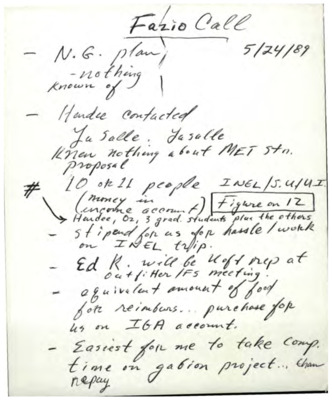 Fazio Call
5/24/89
- N.G. plan
- nothing
known of
- Hardee contacted
LaSalle. Lasalle
knew nothing about MET stn.
proposal
# 10 or 11 people INEL/S.U/U.I.
(money in
income account) Figure on 12
Hardee, Oz, 3 grad students plus the others
- stipend for us for hassle/work
on INEL trip.
- Ed K. will be UofI rep at
outfitter/FS meeting.
- equivalent amount of food
for reimburs... purchase for
us on IGA account.
- Easiest for me to take comp.
time on gabion project...
repay